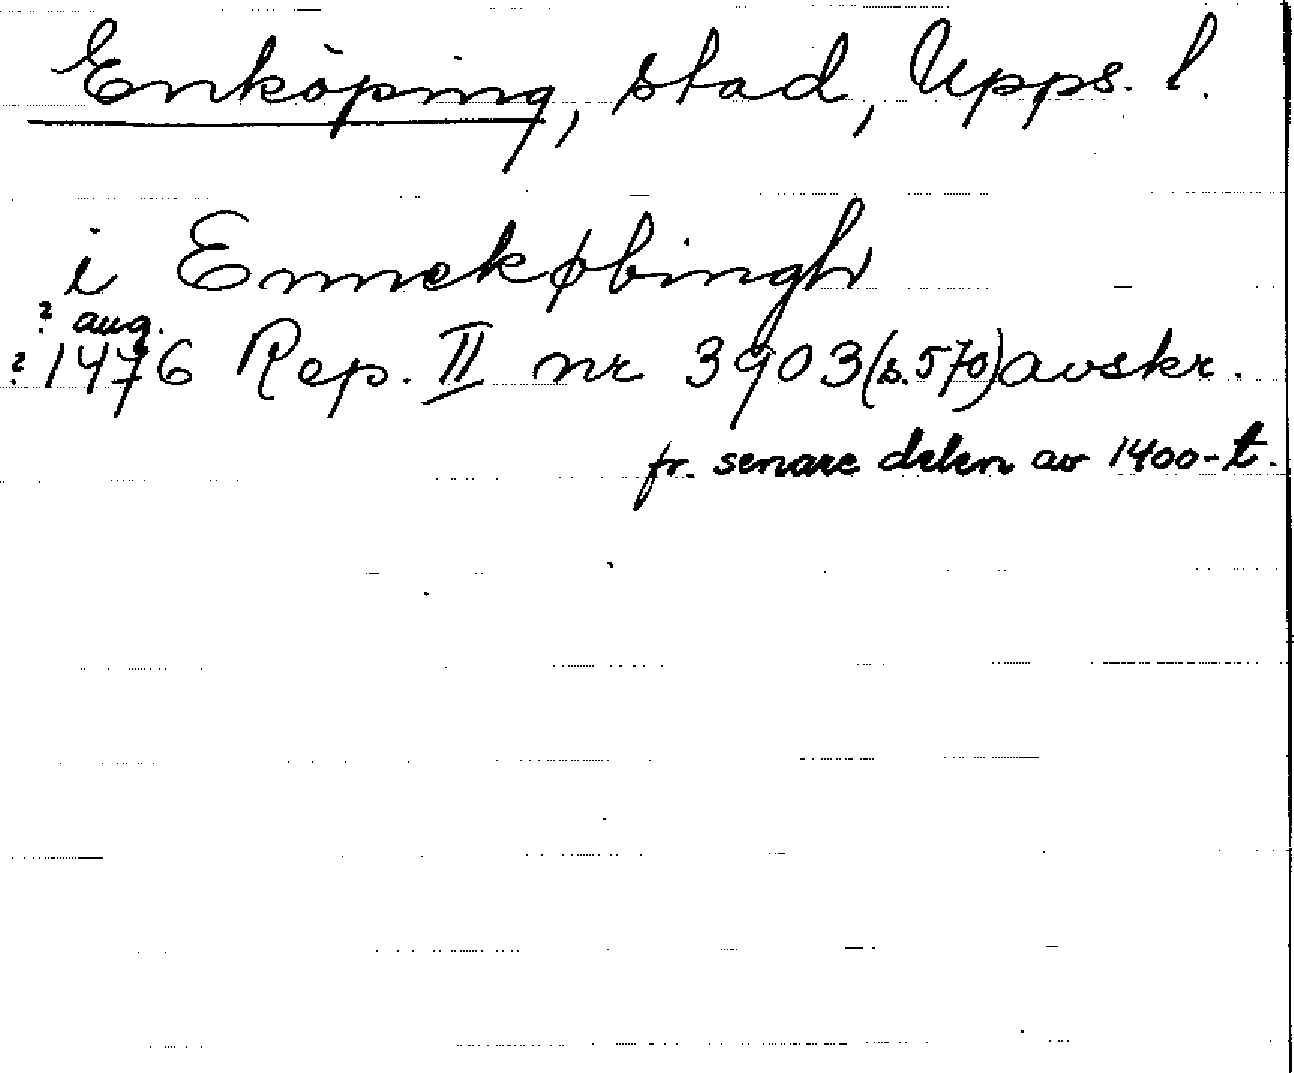 Enköping, stad, Upps. l.
i Ennekøbingh
? aug.
? 1476 Rep. II nr 3903 (s. 570) avskr.
fr. senare delen av 1400-t.